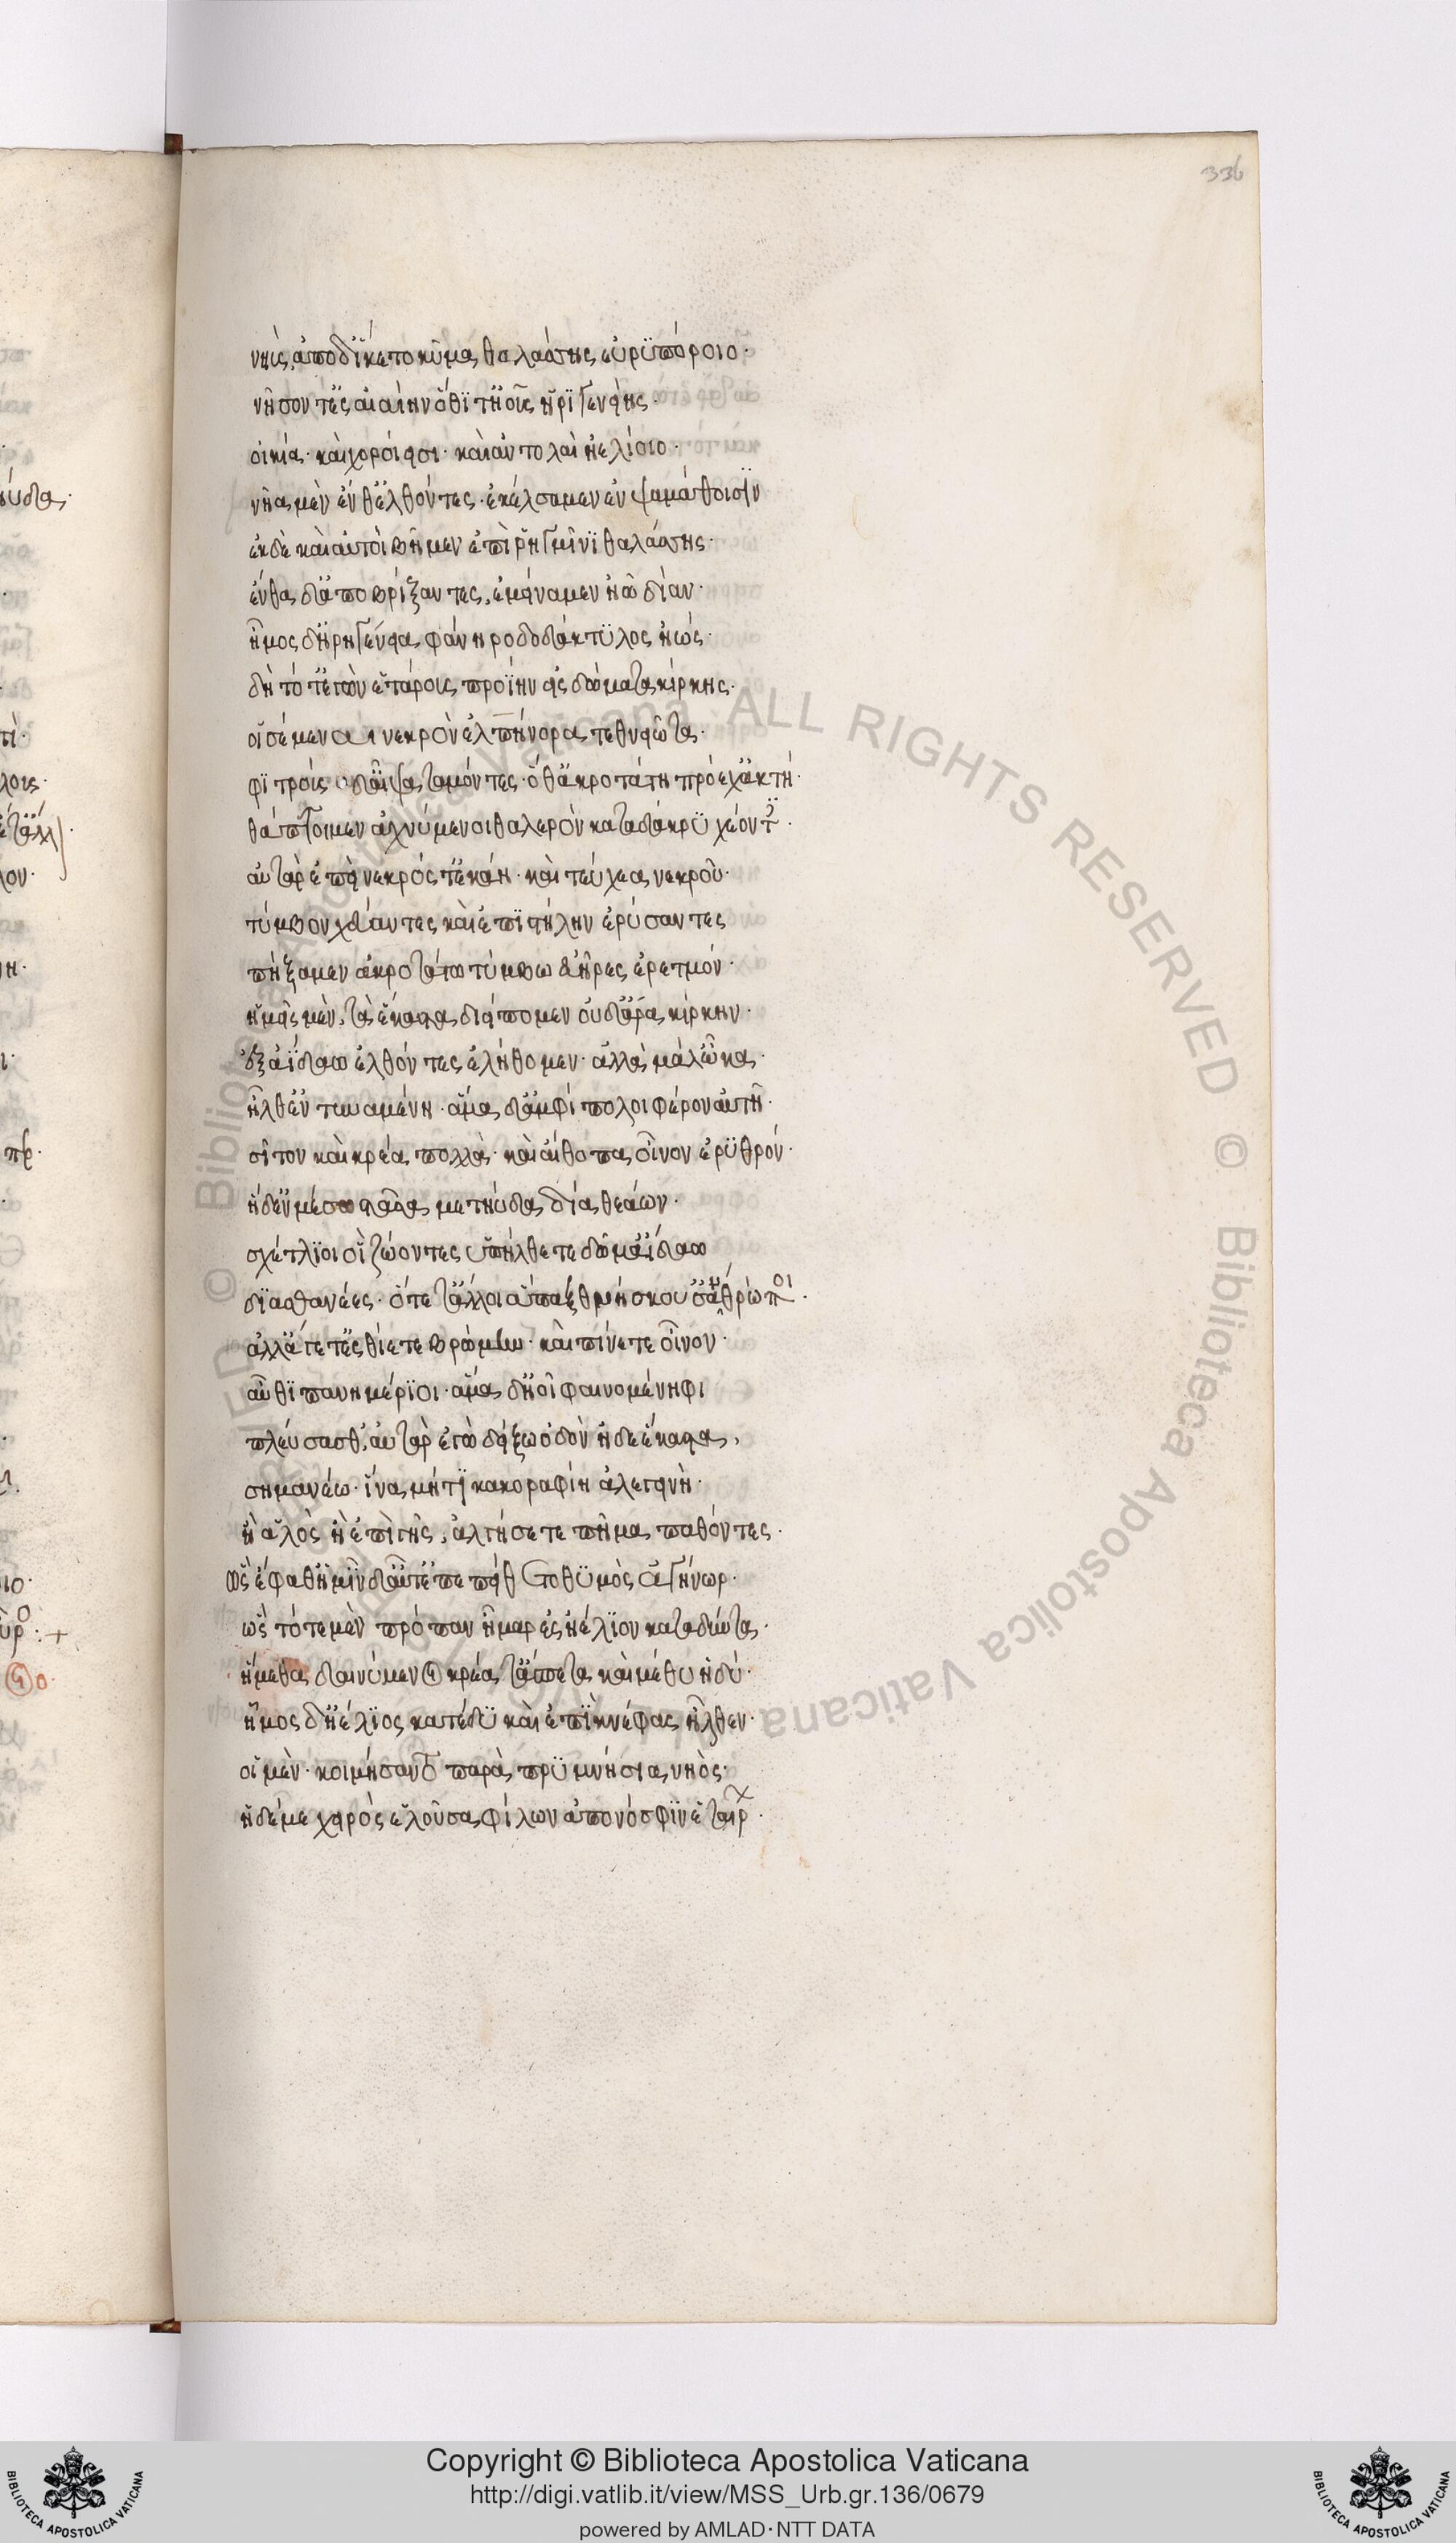 336
νηῦς, ἀπὸ δ' ἵκετο κῦμα θαλάσσης εὐρυπόροιο·
νῆσόν τ' ἐς αἰαίην ὅθι τ' ἠοῦς ἠριγενείης·
οἰκία· καὶ χοροί εἰσι· καὶ ἀντολαὶ ἠελίοιο·
νῆα μὲν ἔνθ' ἐλθόντες· ἐκέλσαμεν ἐν ψαμάθοισιν
ἐκ δὲ καὶ αὐτοὶ βῆμεν ἐπὶ ῥηγμῖνι θαλάσσης·
ἔνθα δ' ἀποβρίξαντες, ἐμείναμεν ἠῶ δῖαν·
ἦμος δ' ἠριγένεια φάνη ῥοδοδάκτυλος ἠώς·
δὴ τότ' ἐγὼν ἑτάρους προΐην εἰς δώματα κίρκης·
οἰσέμεναι νεκρὸν ἐλπήνορα τεθνειῶτα·
φιτροὺς δ' αἶψα ταμόντες· ὅθ' ἀκροτάτη πρόεχ' ἀκτή·
θάπτοιμεν ἀχνύμενοι θαλερὸν κατὰ δάκρυ χέοντες·
αὐτὰρ ἐπεὶ νεκρός τ' ἐκάη· καὶ τεύχεα νεκροῦ·
τύμβον χεύαντες καὶ ἐπὶ στήλην ἐρύσαντες
πήξαμεν ἀκροτάτω τύμβω εὐῆρες ἐρετμόν·
ἡμεῖς μὲν, τὰ ἕκαστα διείπομεν οὐδ' ἄρα κίρκην·
ἐξ ἀΐδαο ἐλθόντες ἐλήθομεν· ἀλλὰ μάλ' ὦκα·
ἦλθ' ἐντυναμένη· ἅμα δ' ἀμφίπολοι φέρον αὐτῆ·
σῖτον καὶ κρέα πολλὰ· καὶ αἴθοπα οἶνον ἐρυθρόν·
ἡ δ' ἐν μέσω στᾶσα μετηύδα δῖα θεάων·
σχέτλιοι οἳ ζώοντες ὑπήλθετε δῶμ' ἀΐδαο
δισθανέες· ὅτε τ' ἄλλοι ἅπαξ θνήσκουσ' ἄνθρωποι·
ἀλλ' ἄγετ' ἐσθίετε βρώμην· καὶ πίνετε οἶνον·
αὖθι πανημέριοι· ἅμα δ' ἠοῖ φαινομένηφι
πλεύσεσθ', αὐτὰρ ἐγὼ δείξω ὁδὸν ἠδὲ ἕκαστα,
σημανέω· ἵνα μήτι κακοραφίη ἀλεγεινῆ·
ἢ ἁλὸς ἢ ἐπὶ γῆς, ἀλγήσετε πῆμα παθόντες·
ὣς ἔφαθ' ἡμῖν δ' αὖτ' ἐπεπείθετο θυμὸς ἀγήνωρ·
ὣς τότε μὲν πρόπαν ἦμαρ ἐς ἠέλιον καταδύντα·
ἥμεθα δαινύμενοι κρέα τ' ἄσπετα καὶ μέθυ ἡδύ·
ἦμος δ' ἠέλιος κατέδυ καὶ ἐπὶ κνέφας ἦλθεν·
οἱ μὲν· κοιμήσαντο παρὰ πρυμνήσια νηὸς·
ἡ δ' ἐμὲ χειρὸς ἑλοῦσα φίλων ἀπονόσφιν ἑταίρων·
Copyright © Biblioteca Apostolica Vaticana
http://digi.vatlib.it/view/MSS_Urb.gr.136/0679
powered by AMLAD·NTT DATA